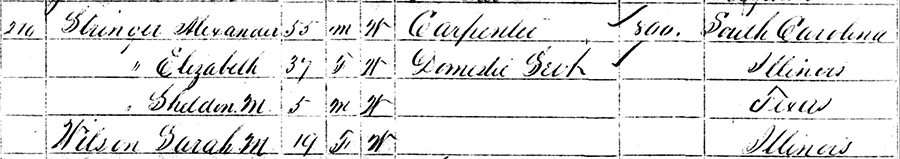 210 Stringer Alexander 55 m W Carpenter 800. South Carolina
" Elizabeth 37 F W Domestic Servt Illinois
" Sheldon M 5 m W Texas
Wilson Sarah M 19 F W Illinois